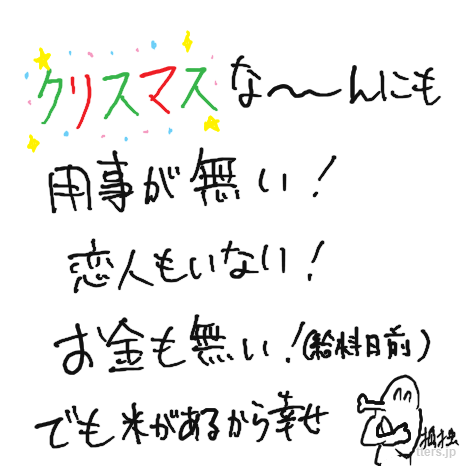 クリスマスな〜〜んにも
用事が無い!
恋人もいない!
お金も無い!(給料日前)
でも米があるから幸せ
孤独